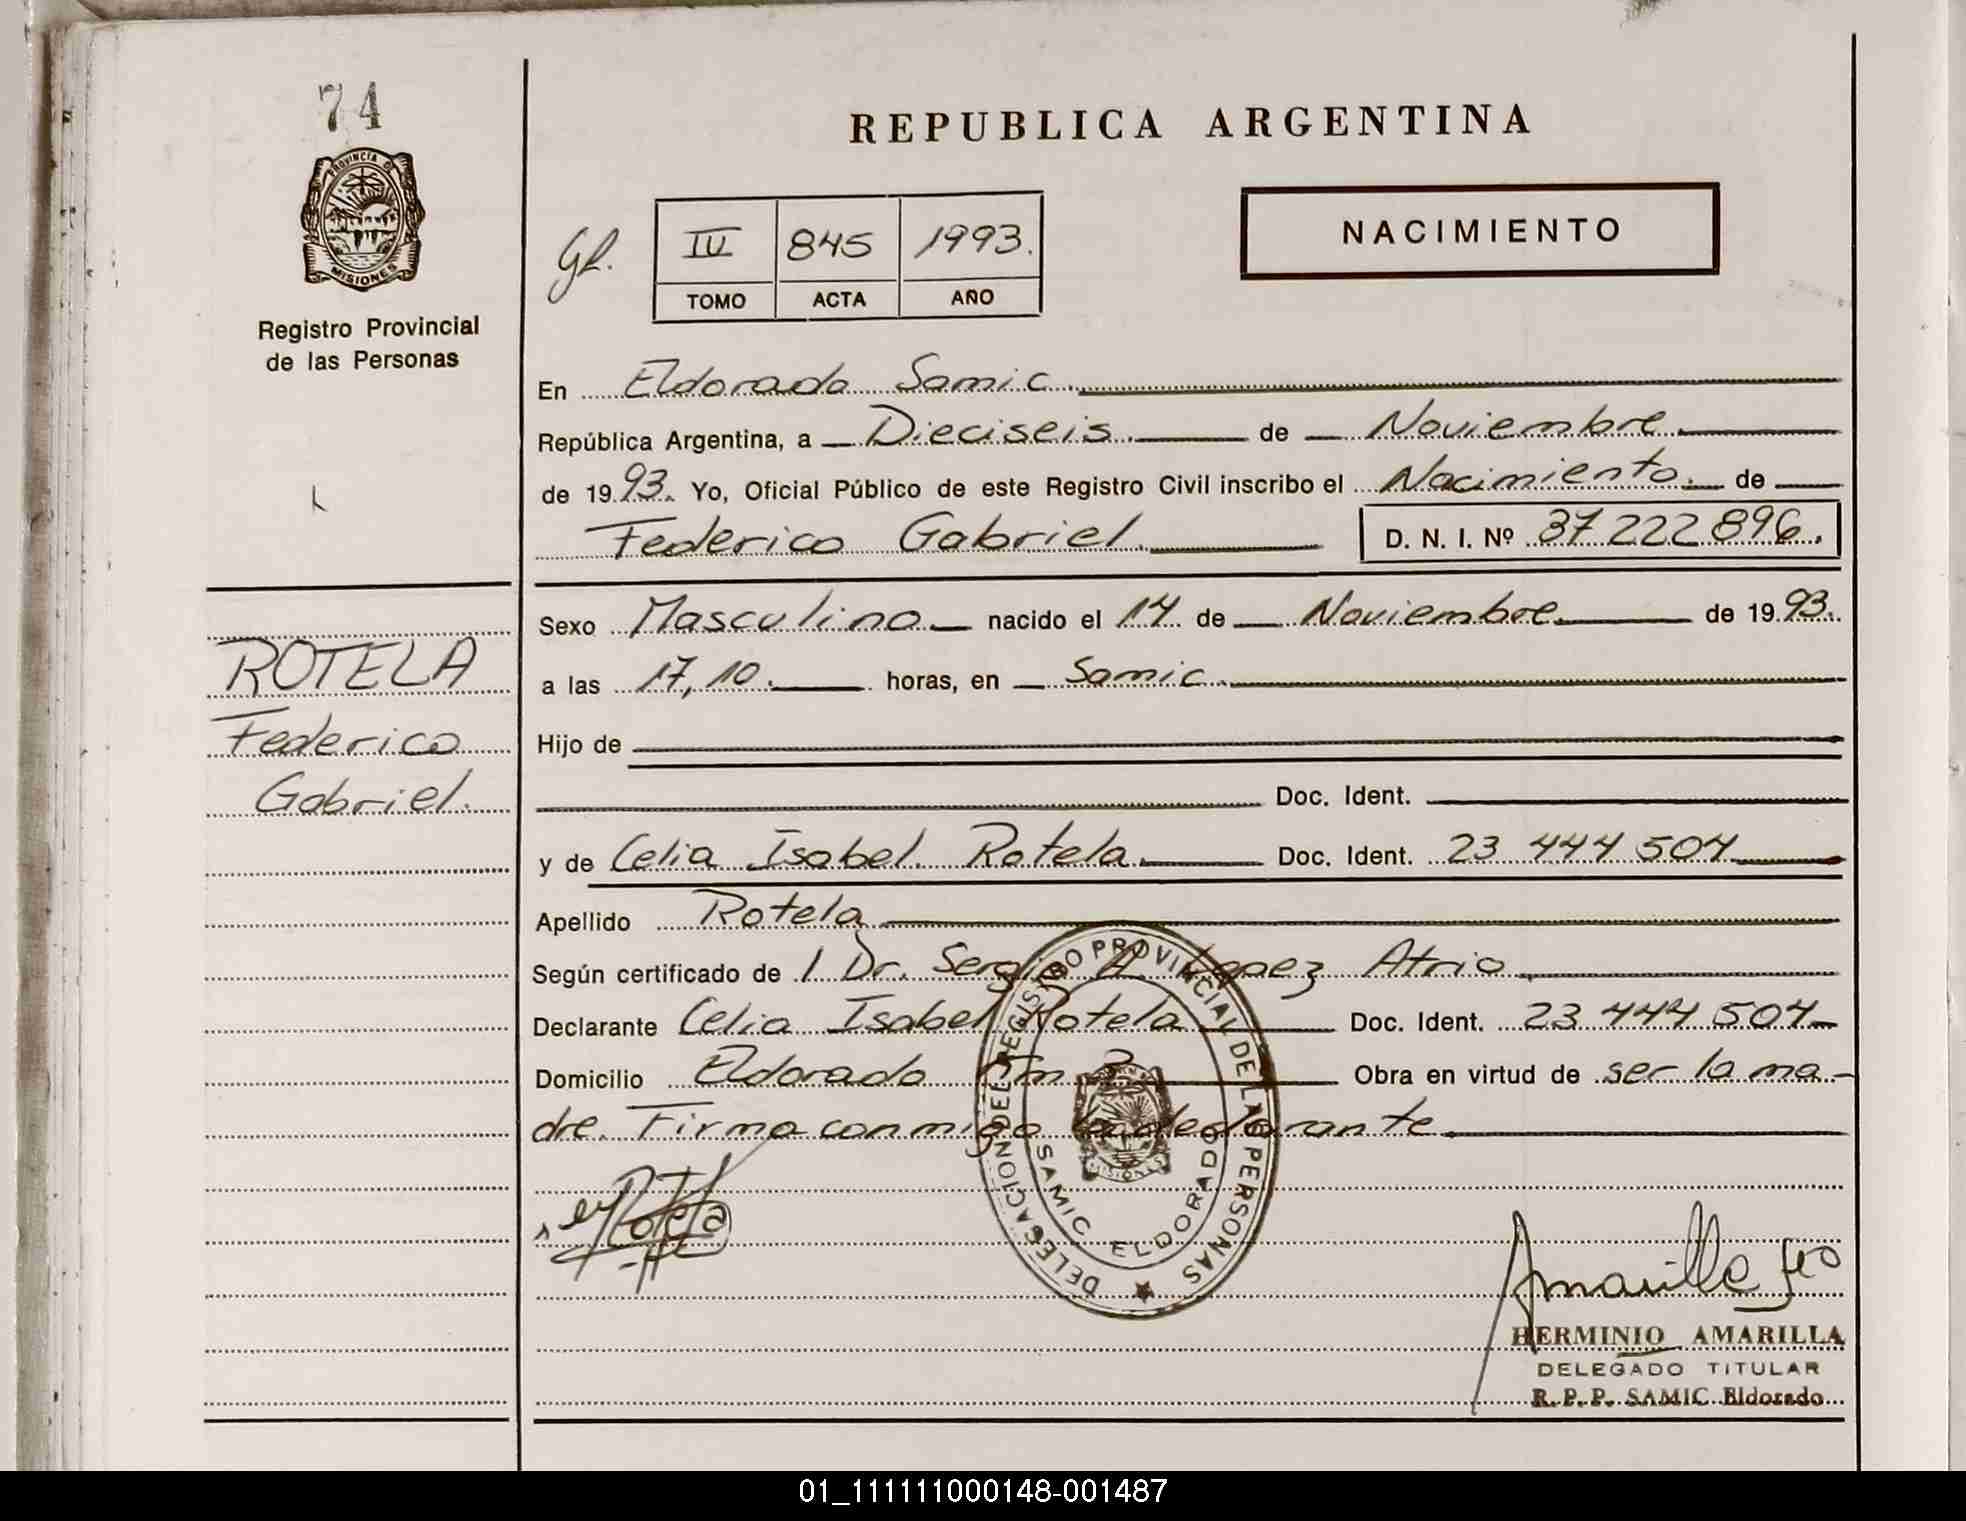 74
PROVINCIA DE
MISIONES
Registro Provincial
de las Personas
REPUBLICA ARGENTINA
IV 845 1993.
TOMO ACTA AÑO
NACIMIENTO
En Eldorado Samic.
República Argentina, a Dieciseis. de Noviembre.
de 1993. Yo, Oficial Público de este Registro Civil inscribo el Nacimiento. de
Federico Gabriel. D. N. I. Nº 37 222 896.
ROTELA
Federico
Gabriel.
Sexo Masculino nacido el 14 de Noviembre de 1993.
a las 17,10. horas, en Samic.
Hijo de
Doc. Ident.
y de Celia Isabel Rotela. Doc. Ident. 23 444 504
Apellido Rotela
Según certificado de 1 Dr. Sergio A. Lopez Atrio
Declarante Celia Isabel Rotela Doc. Ident. 23 444 504
Domicilio Eldorado Km Obra en virtud de ser la ma-
dre. Firma conmigo la declarante
DELEGACION DEL REGISTRO PROVINCIAL DE LAS PERSONAS
SAMIC ELDORADO
MISIONES
Rotela
Amarilla
HERMINIO AMARILLA
DELEGADO TITULAR
R. P. P. SAMIC Eldorado
01_111111000148-001487